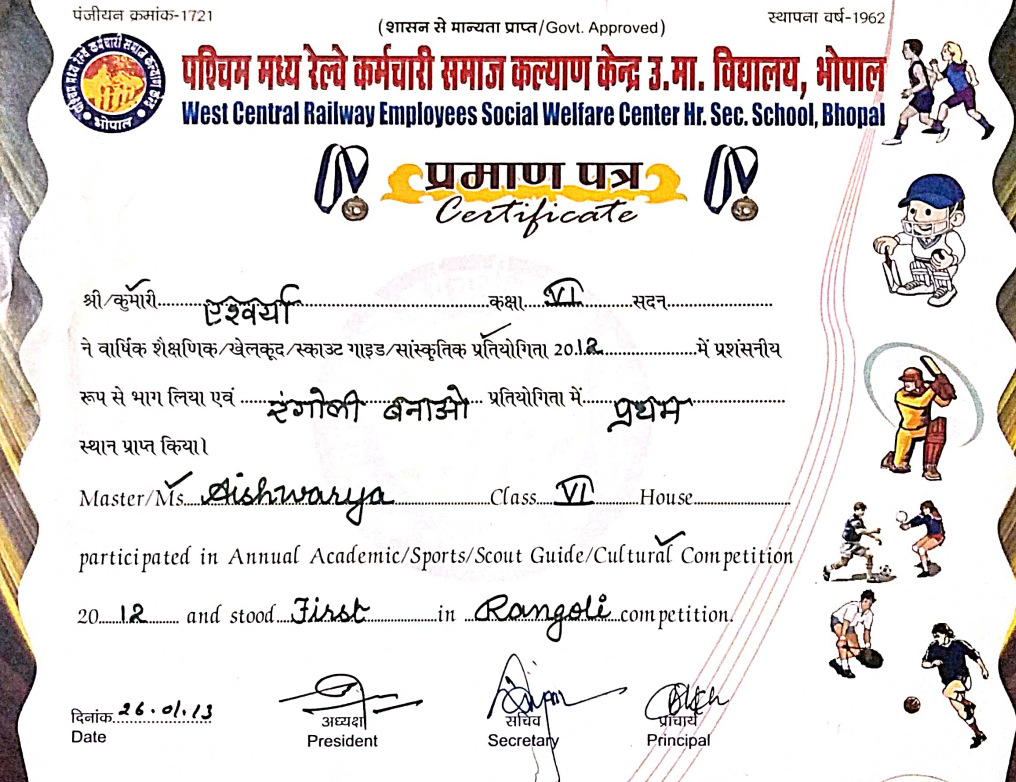 पंजीयन क्रमांक-1721
(शासन से मान्यता प्राप्त/Govt. Approved)
स्थापना वर्ष-1962
पश्चिम मध्य रेल्वे कर्मचारी समाज कल्याण केन्द्र उ.मा. विद्यालय, भोपाल
West Central Railway Employees Social Welfare Center Hr. Sec. School, Bhopal
पश्चिम मध्य रेल्वे कर्मचारी समाज कल्याण केन्द्र
भोपाल
प्रमाण पत्र
Certificate
श्री/कुमारी ऐश्वर्या कक्षा VI सदन
ने वार्षिक शैक्षणिक/खेलकूद/स्काउट गाइड/सांस्कृतिक प्रतियोगिता 2012 में प्रशंसनीय
रूप से भाग लिया एवं रंगोली बनाओ प्रतियोगिता में प्रथम
स्थान प्राप्त किया।
Master/Ms. Aishwarya Class VI House
participated in Annual Academic/Sports/Scout Guide/Cultural Competition
2012 and stood First in Rangoli competition.
दिनांक 26.01.13
Date
अध्यक्ष
President
सचिव
Secretary
प्राचार्य
Principal